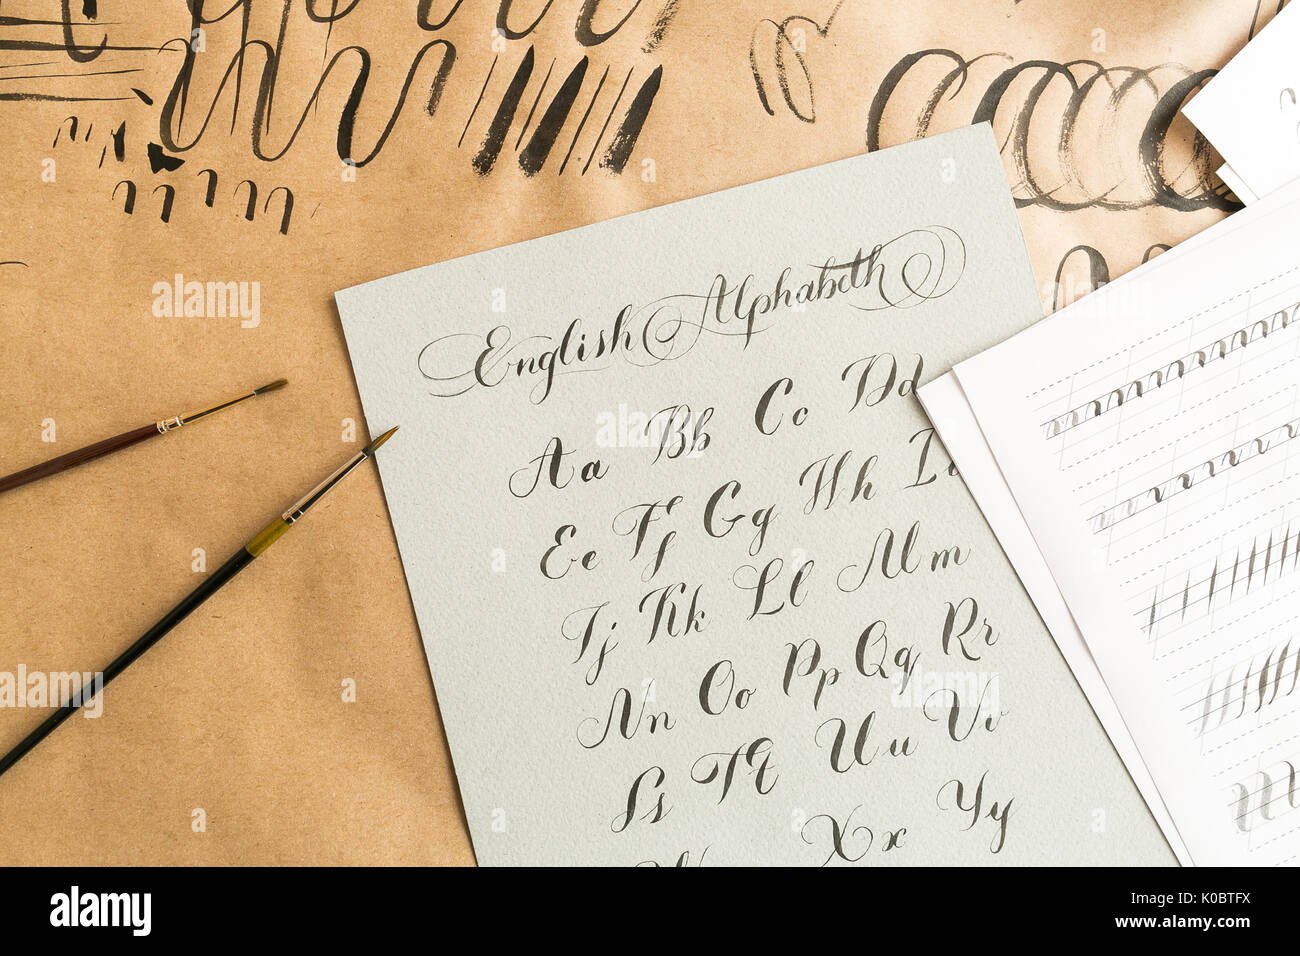 English Alphabeth
Aa Bb Cc Dd
Ee Ff Gg Hh I
Jj Kk Ll Mm
Nn Oo Pp Qq Rr
Ss Tt Uu Vv
Xx Yy
alamy
alamy
Image ID: K0BTFX
www.alamy.com